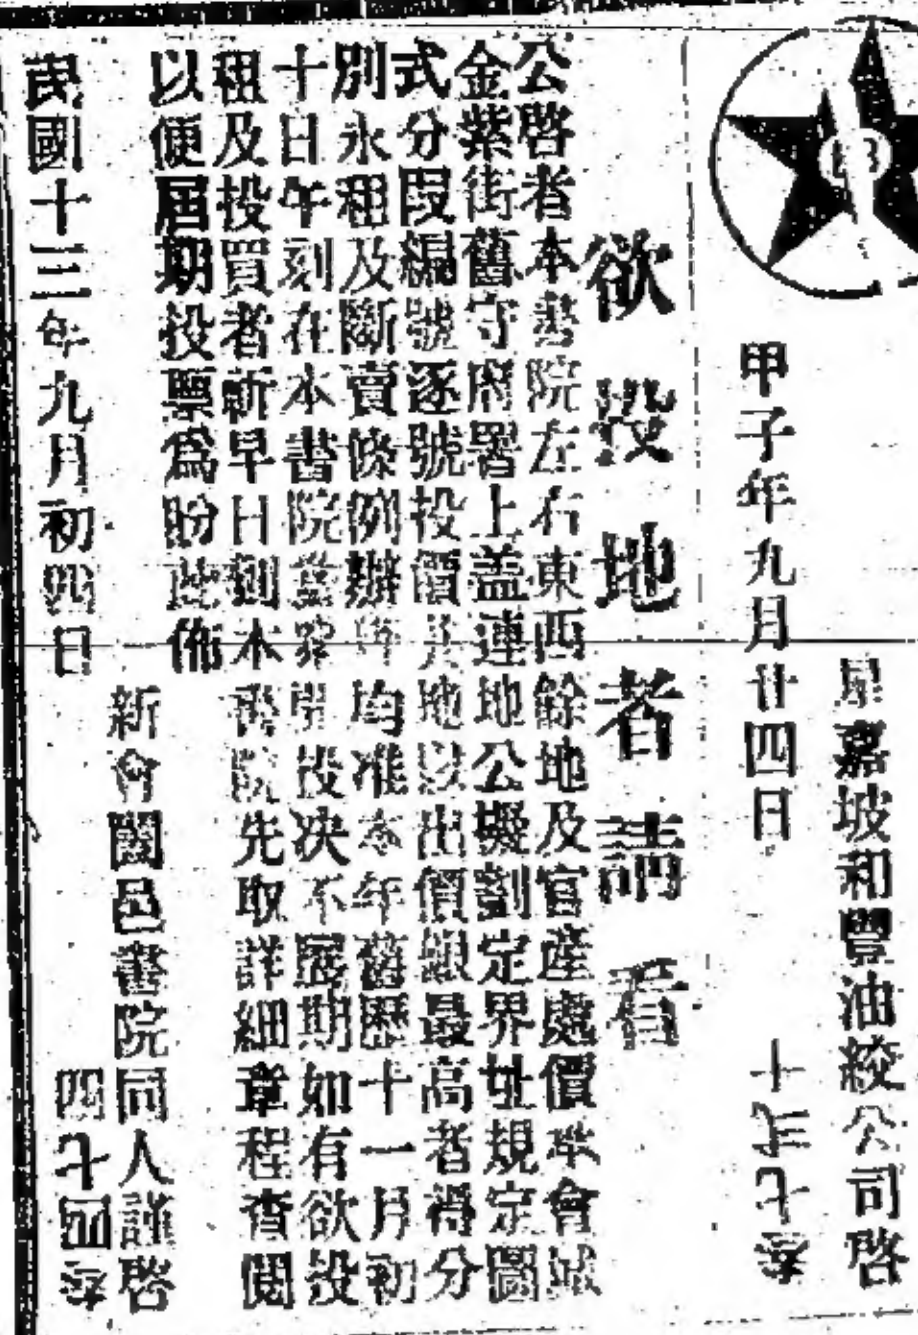 嘉坡和豐油絞公司啓
甲子年九月廿四日
欲投地者請看
公啓者本書院左右東西餘地及官產處價 會城
金紫街舊守府署上盖連地公擬劃定界址規定圖
式分段編號逐號投價 地以出價銀最高者得分
別永租及斷賣條例辦 均准本年舊歷十一月初
十日午刻在本書院 投决不展期如有欲投
租及投買者祈早日到本書院先取詳細章程查閱
以便屆期投票爲盼 佈
新會闔邑書院同人謹啓
民國十三年九月初四日